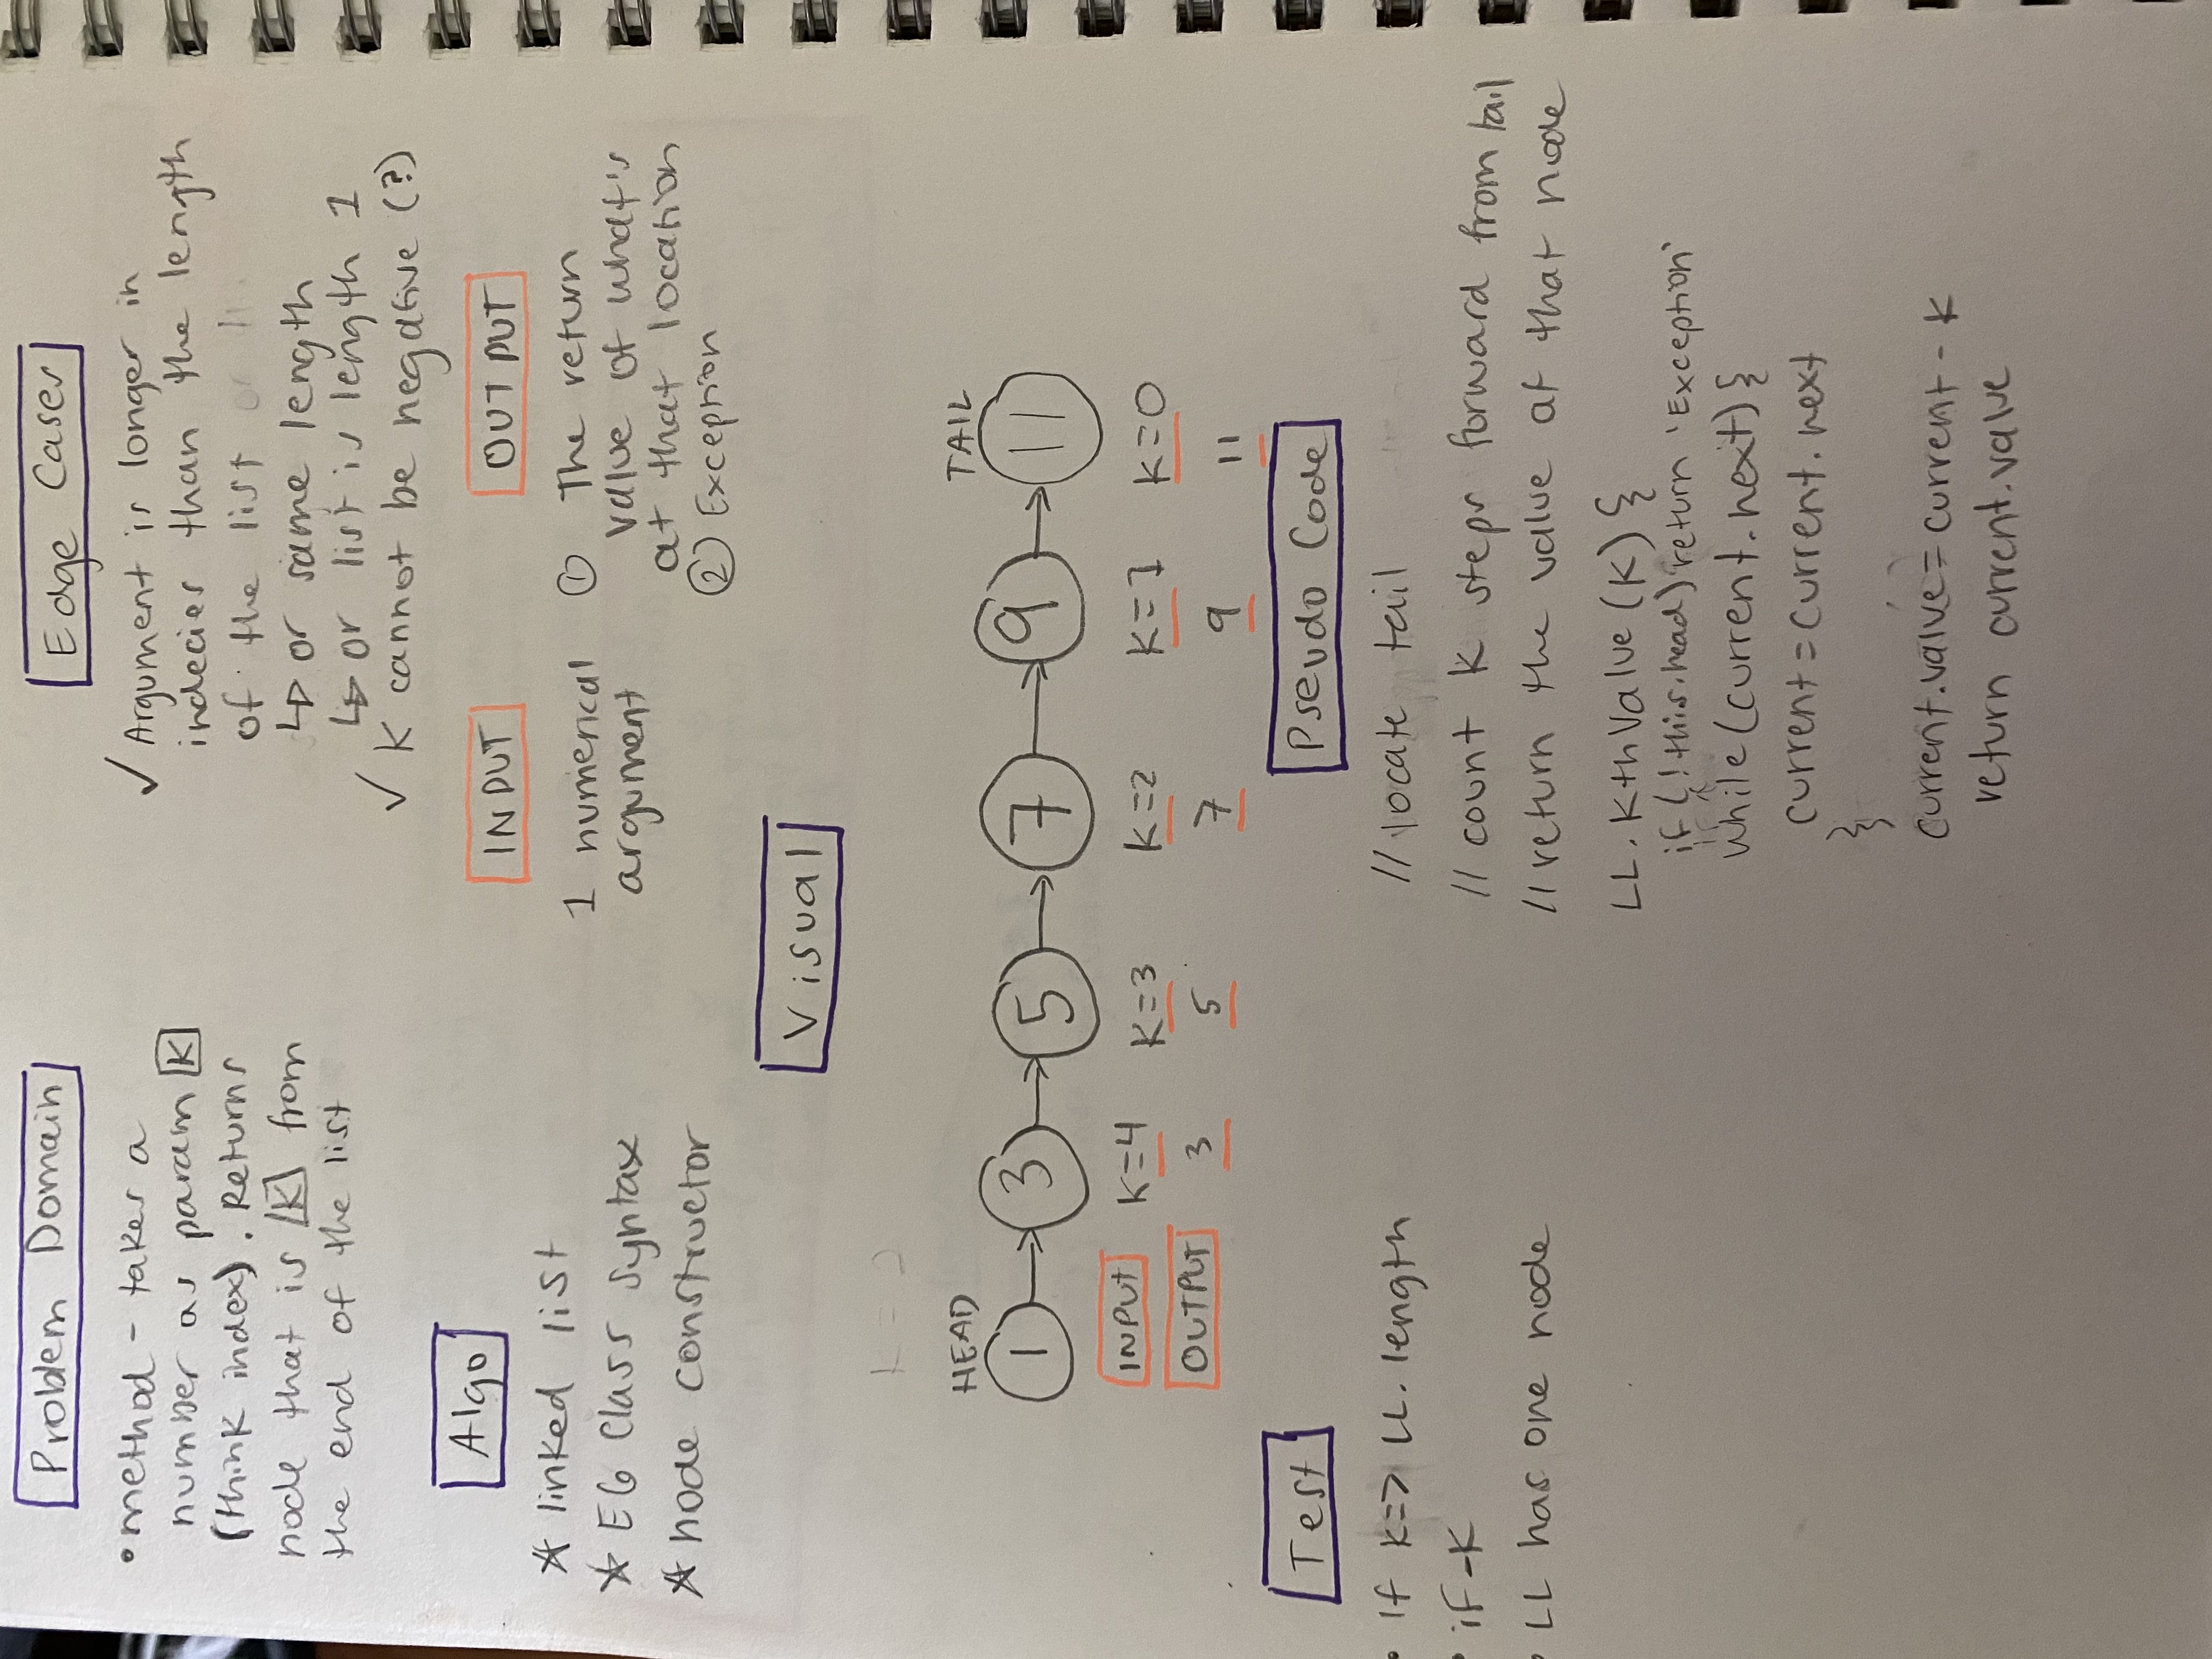 Problem Domain
• method - takes a
number as param K
(think index). Returns
node that is K from
the end of the list
Edge Cases
✓ Argument is longer in
indecies than the length
of the list
↳ or same length
↳ or list is length 1
✓ K cannot be negative (?)
Algo
☆ linked list
☆ E6 Class syntax
☆ node constructor
INPUT
1 numerical
argument
OUTPUT
① The return
value of what's
at that location
② Exception
Visual
K = 2
HEAD TAIL
1 → 3 → 5 → 7 → 9 → 11
INPUT K=4 K=3 K=2 K=1 K=0
OUTPUT 3 5 7 9 11
Test
• If K=> LL.length
• if -K
• LL has one node
Pseudo Code
// locate tail
// count K steps forward from tail
// return the value at that node
LL.KthValue(K) {
if (!this.head) return 'Exception'
while (current.next) {
current = current.next
}
current.value = current - K
return current.value